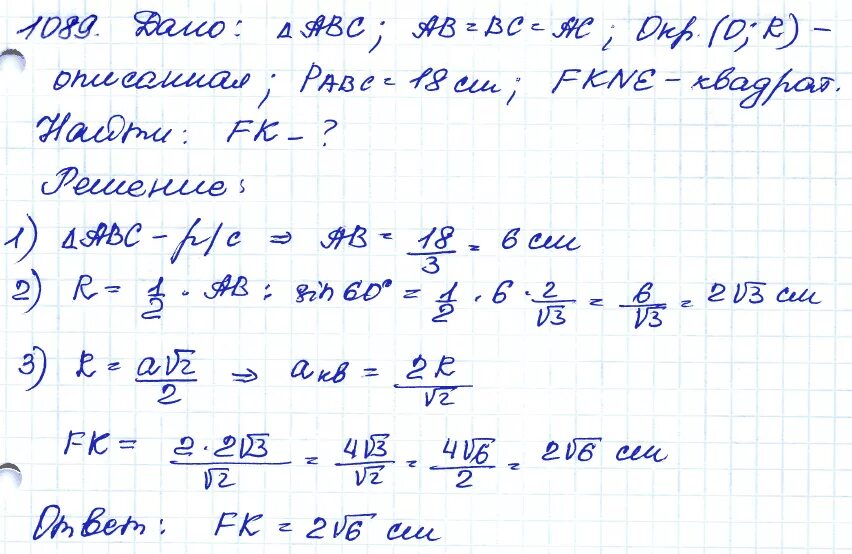 1089. Дано: △ABC; AB = BC = AC; Окр. (O; R) –
описанная; P ABC = 18 см; FKNE – квадрат.
Найти: FK – ?
Решение:
1) △ABC – р/с ⇒ AB = 18/3 = 6 см
2) R = 1/2 · AB : sin 60° = 1/2 · 6 · 2/√3 = 6/√3 = 2√3 см
3) R = a√2/2 ⇒ a кв = 2R/√2
FK = 2·2√3/√2 = 4√3/√2 = 4√6/2 = 2√6 см
Ответ: FK = 2√6 см